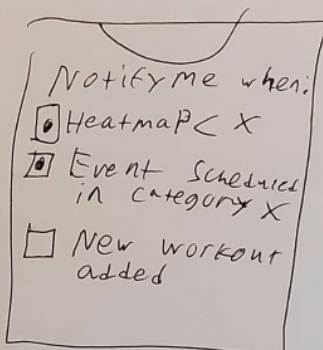 Notify me when:
Heatmap < X
Event Scheduled
in category X
New workout
added